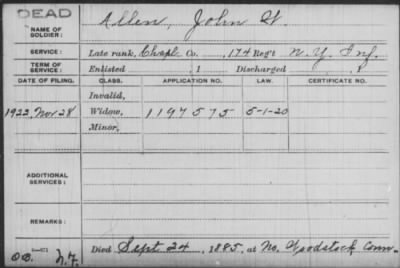 DEAD
NAME OF SOLDIER: Allen, John W.
SERVICE: Late rank, Chapl. Co. , 174 Reg't N.Y. Inf.
TERM OF SERVICE: Enlisted , 1 Discharged , 1
DATE OF FILING. CLASS. APPLICATION NO. LAW. CERTIFICATE NO.
Invalid,
1922, Nov 28 Widow, 1197575 5-1-20
Minor,
ADDITIONAL SERVICES:
REMARKS:
Died Sept 24, 1885, at No. Woodstock Conn.